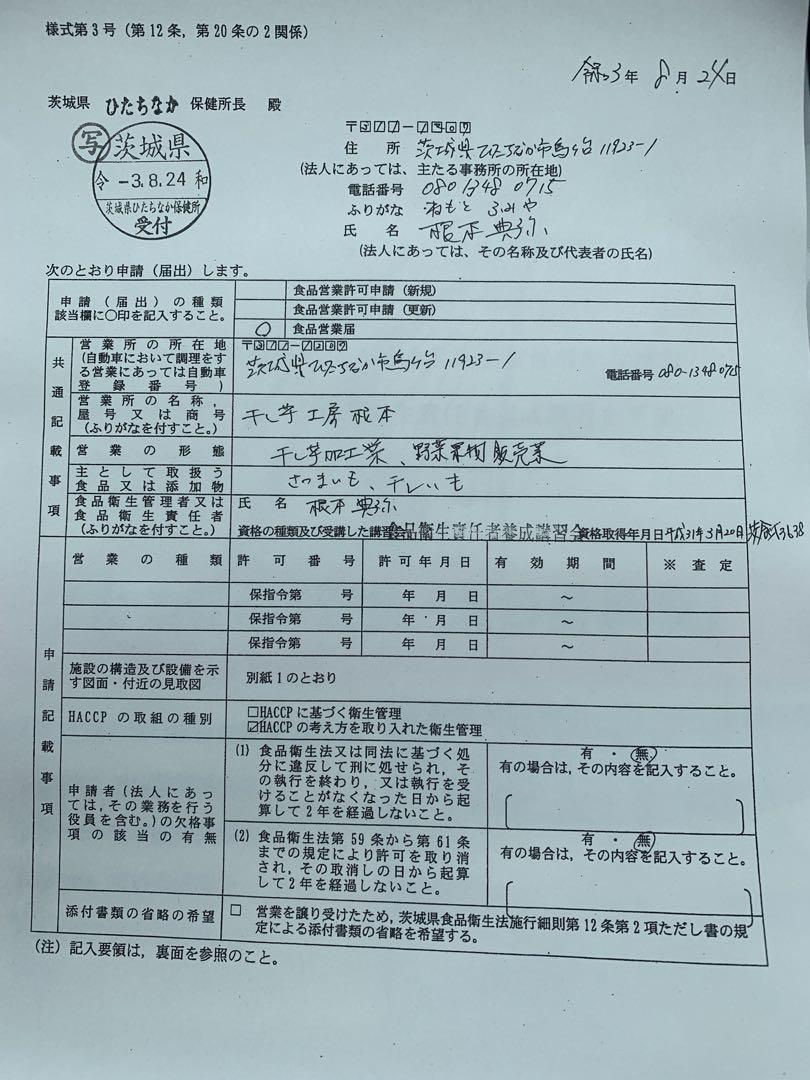 様式第3号（第12条，第20条の2関係）
令和3年8月24日
茨城県 ひたちなか 保健所長 殿
写
茨城県
令 -3.8.24 和
茨城県ひたちなか保健所
受付
住所 茨城県ひたちなか市馬渡 11923-1
（法人にあっては、主たる事務所の所在地）
電話番号 080 1348 0715
ふりがな ねもと ふみや
氏名 根本 典弥
（法人にあっては、その名称及び代表者の氏名）
次のとおり申請（届出）します。
申請（届出）の種類
該当欄に○印を記入すること。
食品営業許可申請（新規）
食品営業許可申請（更新）
○ 食品営業届
共通記載事項
営業所の所在地
（自動車において調理をする営業にあっては自動車登録番号）
茨城県ひたちなか市馬渡 11923-1
電話番号 080-1348 0715
営業所の名称，
屋号又は商号
（ふりがなを付すこと。）
干し芋工房 根本
営業の形態
干し芋加工業、野菜果物販売業
主として取扱う
食品又は添加物
さつまいも、干しいも
食品衛生管理者又は
食品衛生責任者
（ふりがなを付すこと。）
氏名 根本 典弥
資格の種類及び受講した講習会 食品衛生責任者養成講習会 資格取得年月日 平成31年3月20日
申請記載事項
営業の種類 許可番号 許可年月日 有効期間 ※査定
保指令第 号 年 月 日 ～
保指令第 号 年 月 日 ～
保指令第 号 年 月 日 ～
施設の構造及び設備を示
す図面・付近の見取図
別紙1のとおり
HACCPの取組の種別
□HACCPに基づく衛生管理
☑HACCPの考え方を取り入れた衛生管理
申請者（法人にあっ
ては，その業務を行う
役員を含む。）の欠格事
項の該当の有無
(1) 食品衛生法又は同法に基づく処
分に違反して刑に処せられ，そ
の執行を終わり，又は執行を受
けることがなくなった日から起
算して2年を経過しないこと。
有・無
有の場合は，その内容を記入すること。
(2) 食品衛生法第59条から第61条
までの規定により許可を取り消
され，その取消しの日から起算
して2年を経過しないこと。
有・無
有の場合は，その内容を記入すること。
添付書類の省略の希望
□ 営業を譲り受けたため，茨城県食品衛生法施行細則第12条第2項ただし書の規
定による添付書類の省略を希望する。
（注）記入要領は，裏面を参照のこと。